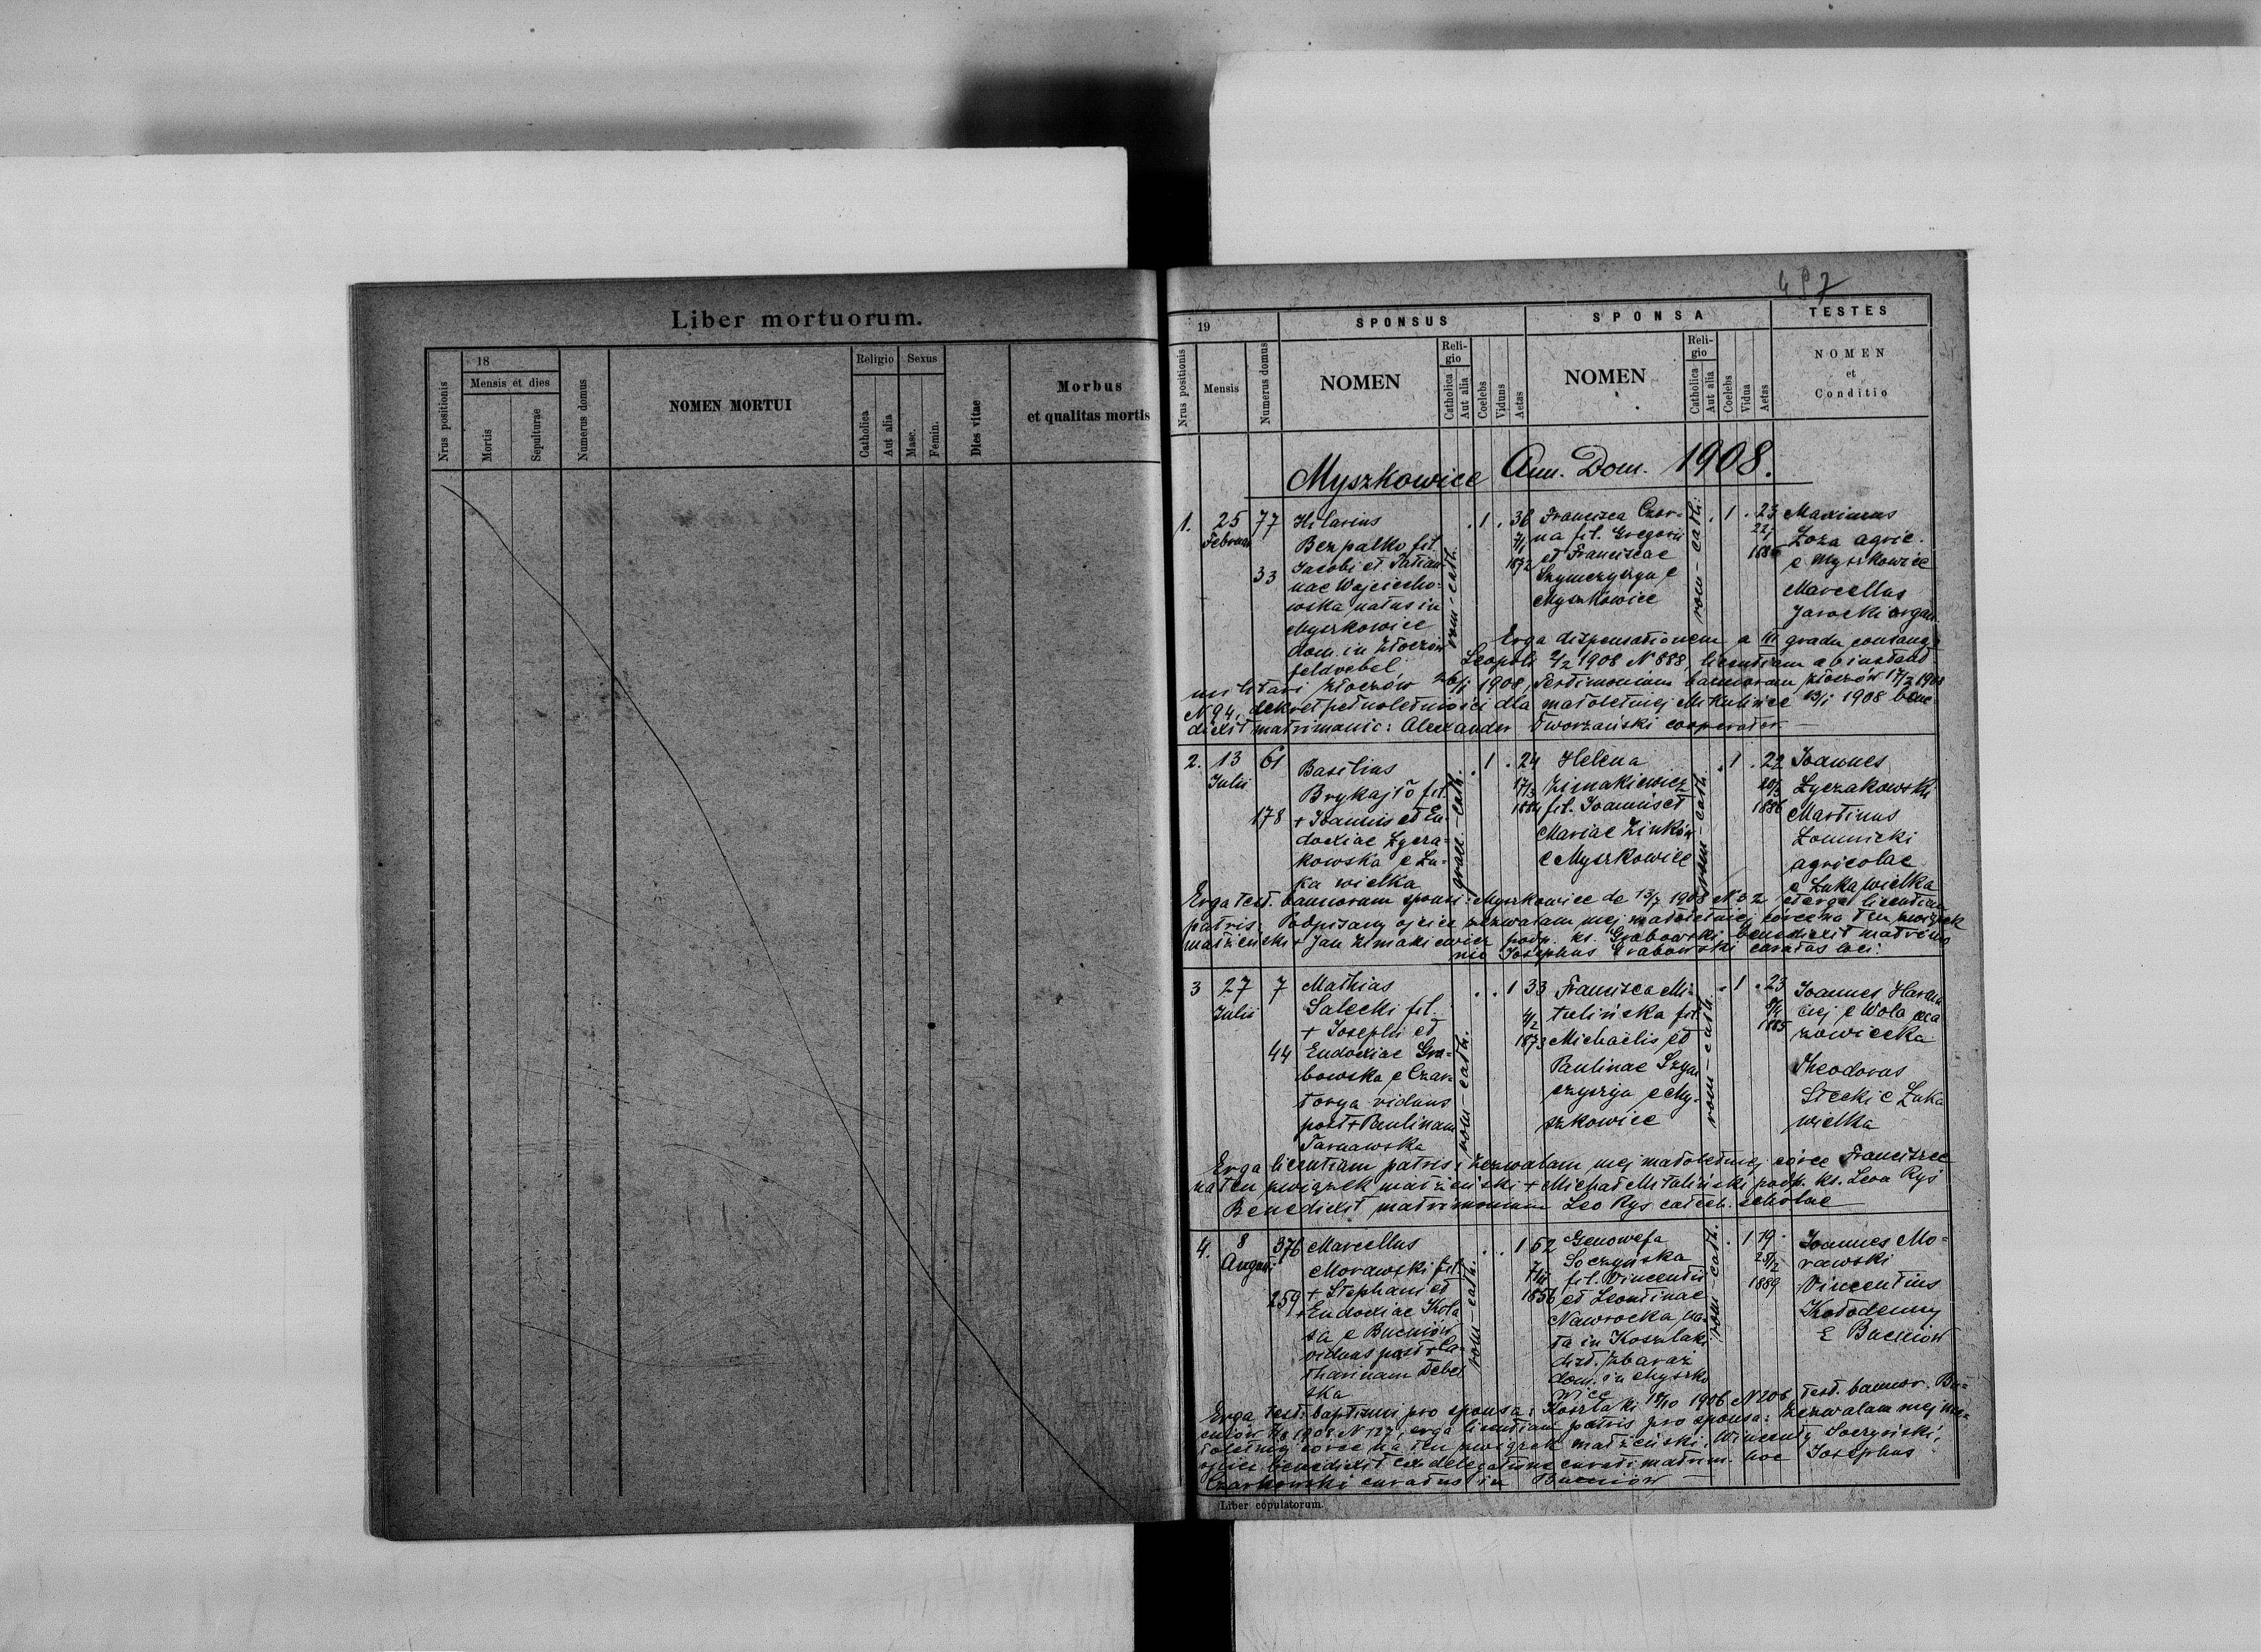 Liber mortuorum.
Nrus positionis
18
Mensis et dies
Mortis
Sepulturae
Numerus domus
NOMEN MORTUI
Religio
Catholica
Aut alia
Sexus
Masc.
Femin.
Dies vitae
Morbus
et qualitas mortis
497
19
SPONSUS
SPONSA
TESTES
Nrus positionis
Mensis
Numerus domus
NOMEN
Reli-
gio
Catholica
Aut alia
Coelebs
Viduus
Aetas
NOMEN
Reli-
gio
Catholica
Aut alia
Coelebs
Vidua
Aetas
NOMEN
et
Conditio
Myszkowice Ann. Dom. 1908.
1.
25
Februar
77
33
Hilarius
Bezpalko fil.
Jacobi et Tatian-
nae Wojciecho-
wska natus in
Myszkowice
dom. in Złoczów
feldvebel
rom-cath.
1
36
1872
Francisca Czor-
na fil. Gregorii
et Franciscae
Szymczyszyn e
Myszkowice
rom-cath.
1
23
Maximus
Łoza agric.
e Myszkowice
Marcellus
Jarocki organ.
Erga dispensationem a III gradu consang.
Leopoli 2/2 1908 N 888, licentiam a b instant
militari Złoczów 26/1 1908, Testimonium bannorum Złoczów 17/2 1908
N 94, dekret pełnoletności dla małoletniej Mikulińce 13/1 1908 bene-
dixit matrimonio: Alexander Dworzański cooperator
2.
13
Julii
61
178
Basilius
Brykajło fil.
+ Joannis et Eu-
doxiae Łycza-
kowska e Łu-
ka wielka
graec.-cath.
1
24
17/3
1884
Helena
Zimakiewicz
fil. Joannis et
Mariae Zinków
e Myszkowice
rom-cath.
1
22
20/3
1886
Joannes
Łyczakowski
Martinus
Łomnicki
agricolae
e Łuka wielka
Erga test. bannorum sponsi: Myszkowice de 13/7 1908 N 02, et erga licentiam
patris: Podpisany ojciec zezwalam mej małoletniej córce na ten związek
małżeński + Jan Zimakiewicz podp. ks. Grabowski benedixit matrimo
nio Josephus Grabowski curatus loci.
3
27
Julii
7
44
Mathias
Salecki fil.
+ Josephi et
Eudoxiae Gra-
bowska e Czar
torya viduus
post + Paulinam
Tarnawska
rom-cath.
1
33
4/2
1873
Francisca Mi-
talińska fil.
Michaelis et
Paulinae Szym
czyszyn e My-
szkowice
rom-cath.
1
23
1885
Joannes Harma
ciej e Wola ma
zowiecka
Theodorus
Stecki e Łuka
wielka
Erga licentiam patris: Zezwalam mej małoletniej córce Franciszce
na ten związek małżeński + Michał Mitaliński podp. ks. Leon Ryś
Benedixit matrimonium Leo Rys catech. scholae
4.
8
Augusti
376
259
Marcellus
Morawski fil.
+ Stephani et
+ Eudoxiae Kola
sa e Bucniów
viduus post + Ca-
tharinam Debel
ska
rom-cath.
1
52
1856
Genowefa
Soczyńska
fil. Vincentii
et Leontinae
Nawrocka, na-
ta in Koszlaki
dist. Zbaraż
dom. in Myszko
wice
rom-cath.
1
19
28/12
1889
Joannes Mo-
rawski
Vincentius
Kołodenny
E Bucniów
Erga test. baptismi pro sponsa: Koszlaki 18/10 1906 N 206 test. bannor. Bu-
cniów 7/8 1908 N 127, erga licentiam patris pro sponsa: Zezwalam mej ma-
łoletniej córce na ten związek małżeński: Wincenty Soczyński,
ojciec benedixit ex delegatione curati matrim. hoc Josephus
Czarkowski curatus in Bucniów
Liber copulatorum.